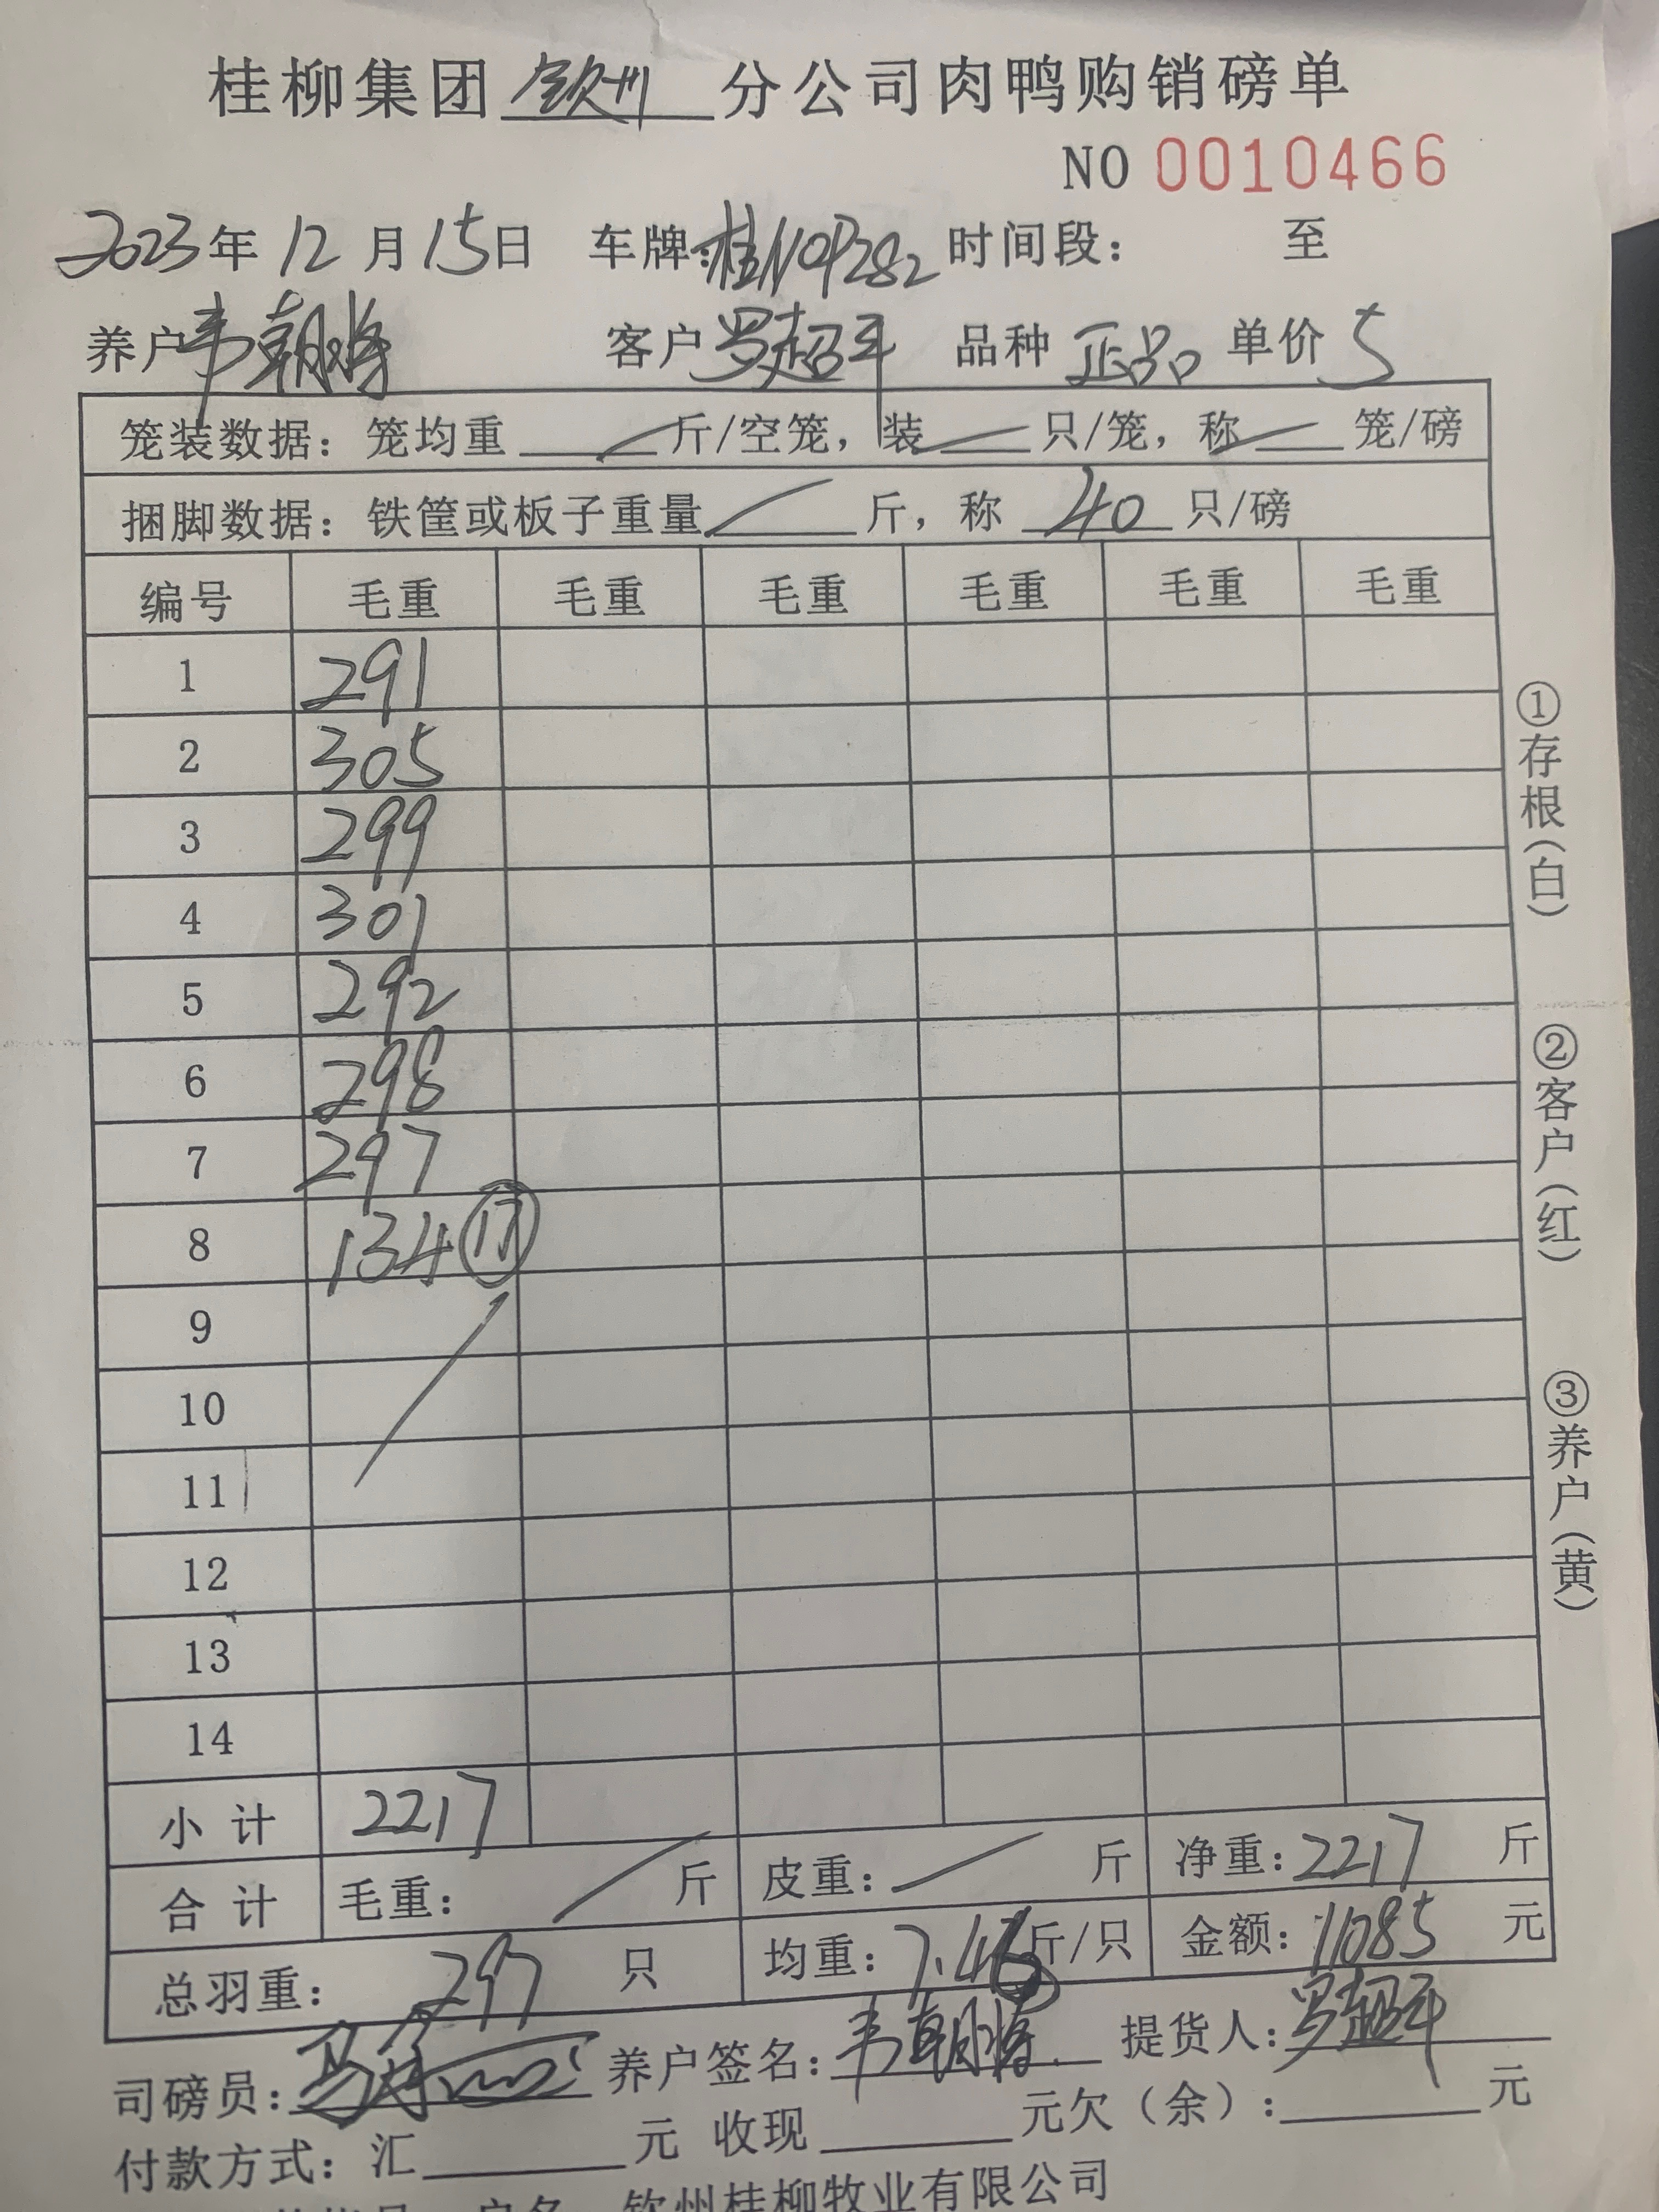 桂柳集团 钦州 分公司肉鸭购销磅单
NO 0010466
2023年 12 月 15日 车牌:桂N0P282 时间段: 至
养户 韦朝 客户 罗超平 品种 正品 单价 5
笼装数据: 笼均重 / 斤/空笼, 装 / 只/笼, 称 / 笼/磅
捆脚数据: 铁筐或板子重量 / 斤, 称 40 只/磅
编号 毛重 毛重 毛重 毛重 毛重 毛重
1 291
2 305
3 299
4 301
5 292
6 298
7 297
8 134 ⑰
9
10
11
12
13
14
小计 2217
合计 毛重: / 斤 皮重: / 斤 净重: 2217 斤
总羽重: 297 只 均重: 7.46 斤/只 金额: 11085 元
司磅员: 养户签名: 韦朝 提货人: 罗超平
付款方式: 汇 元 收现 元欠(余): 元
户名 钦州桂柳牧业有限公司
①存根(白)
②客户(红)
③养户(黄)